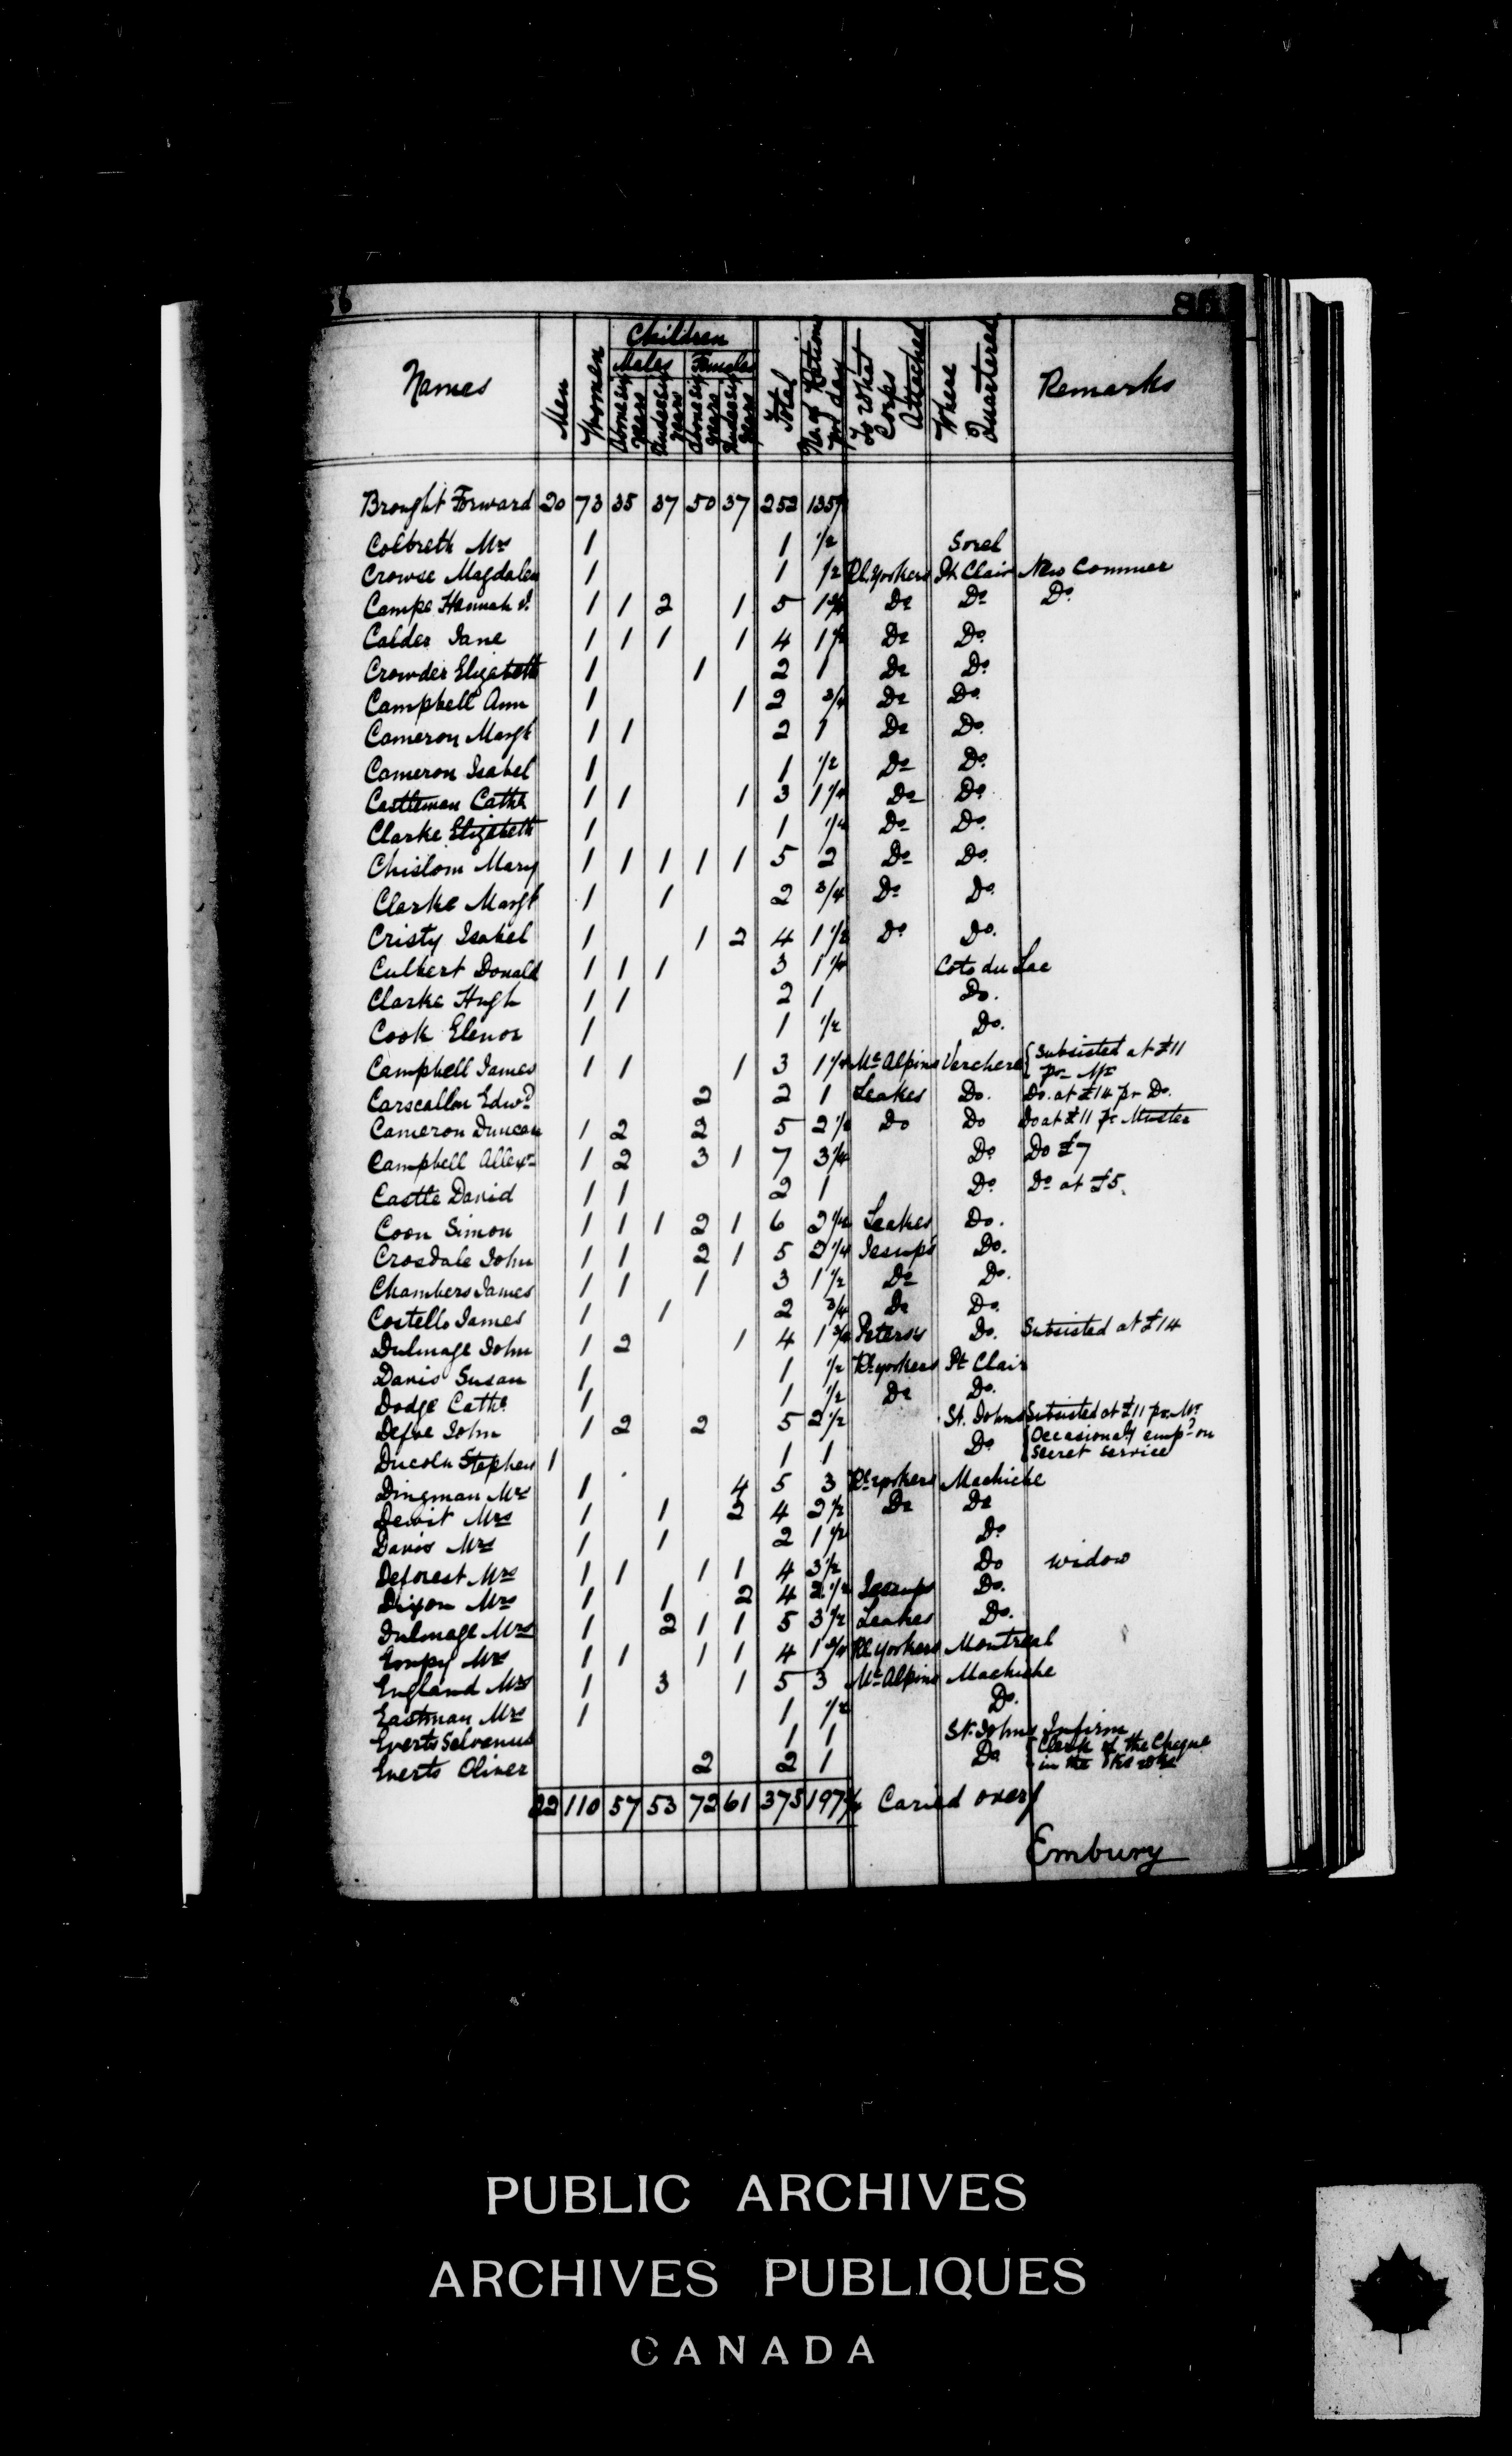 86
Names Men Women Children Total No. of Rations per day To What Corps Attached Where Quartered Remarks
Males Females
Above six years Under six years Above six years Under six years
Brought Forward 20 73 35 37 50 37 252 135
Colbreth Mrs 1 1 1/2 Sorel
Crowse Magdalen 1 1 1/2 Rl. Yorkers Pt Clair New Commer
Campe Hannah 1 1 2 1 5 1 3/4 Do Do Do
Calder Jane 1 1 1 1 4 1 1/2 Do Do
Crowder Elizabeth 1 1 2 1 Do Do
Campbell Ann 1 1 2 3/4 Do Do
Cameron Margt 1 1 2 1 Do Do
Cameron Isabel 1 1 1/2 Do Do
Castleman Cathe 1 1 1 3 1 1/4 Do Do
Clarke Elizabeth 1 1 1/4 Do Do
Chislom Mary 1 1 1 1 1 5 2 Do Do
Clarke Margt 1 1 2 3/4 Do Do
Cristy Isabel 1 1 2 4 1 1/2 Do Do.
Culbert Donald 1 1 1 3 1 1/4 Coto du Lac
Clarke Hugh 1 1 2 1 Do.
Cook Elenor 1 1 1/2 Do.
Campbell James 1 1 1 3 1 1/4 Mc Alpins Verchere { Subsisted at £11
pr. Mr
Carscallen Edwd 2 2 1 Leakes Do. Do. at £14 pr Do.
Cameron Duncan 1 2 2 5 2 1/2 Do Do Do at £11 pr Muster
Campbell Allexr 1 2 3 1 7 3 1/4 Do Do £7
Castle David 1 1 2 1 Do Do at £5.
Coon Simon 1 1 1 2 1 6 2 1/4 Leakes Do.
Crosdale John 1 1 2 1 5 2 1/4 Jesups Do.
Chambers James 1 1 1 3 1 1/2 Do Do.
Costello James 1 1 2 3/4 Do Do.
Dulmage John 1 2 1 4 1 3/4 Peters's Do. Subsisted at £14
Davis Susan 1 1 1/2 Rl. Yorkers Pt Clair
Dodge Cathe 1 1 1/2 Do Do.
Defoe John 1 2 2 5 2 1/2 St. Johns Subsisted at £11 pr. Mr
Ducoln Stephen 1 1 1 Do { Occasionaly empd on
Secret Service
Dingman Mrs 1 4 5 3 Rl. Yorkers Machiche
Dewit Mrs 1 1 2 4 2 1/2 Do Do
Davis Mrs 1 1 2 1 1/2 Do
Deforest Mrs 1 1 1 1 4 3 1/2 Do widow
Dixon Mrs 1 1 2 4 2 1/2 Jessups Do.
Dulmage Mrs 1 2 1 1 5 3 1/2 Leakes Do.
Empy Mrs 1 1 1 1 4 1 3/4 Rl. Yorkers Montreal
England Mrs 1 3 1 5 3 Mc Alpins Machiche
Eastman Mrs 1 1 1/2 Do.
Everts Selvenus 1 1 St. Johns Infirm
Everts Oliver 2 2 1 Do { Clerk of the Cheque
in the
22 110 57 53 72 61 375 197 Caried over
Embury
PUBLIC ARCHIVES
ARCHIVES PUBLIQUES
CANADA